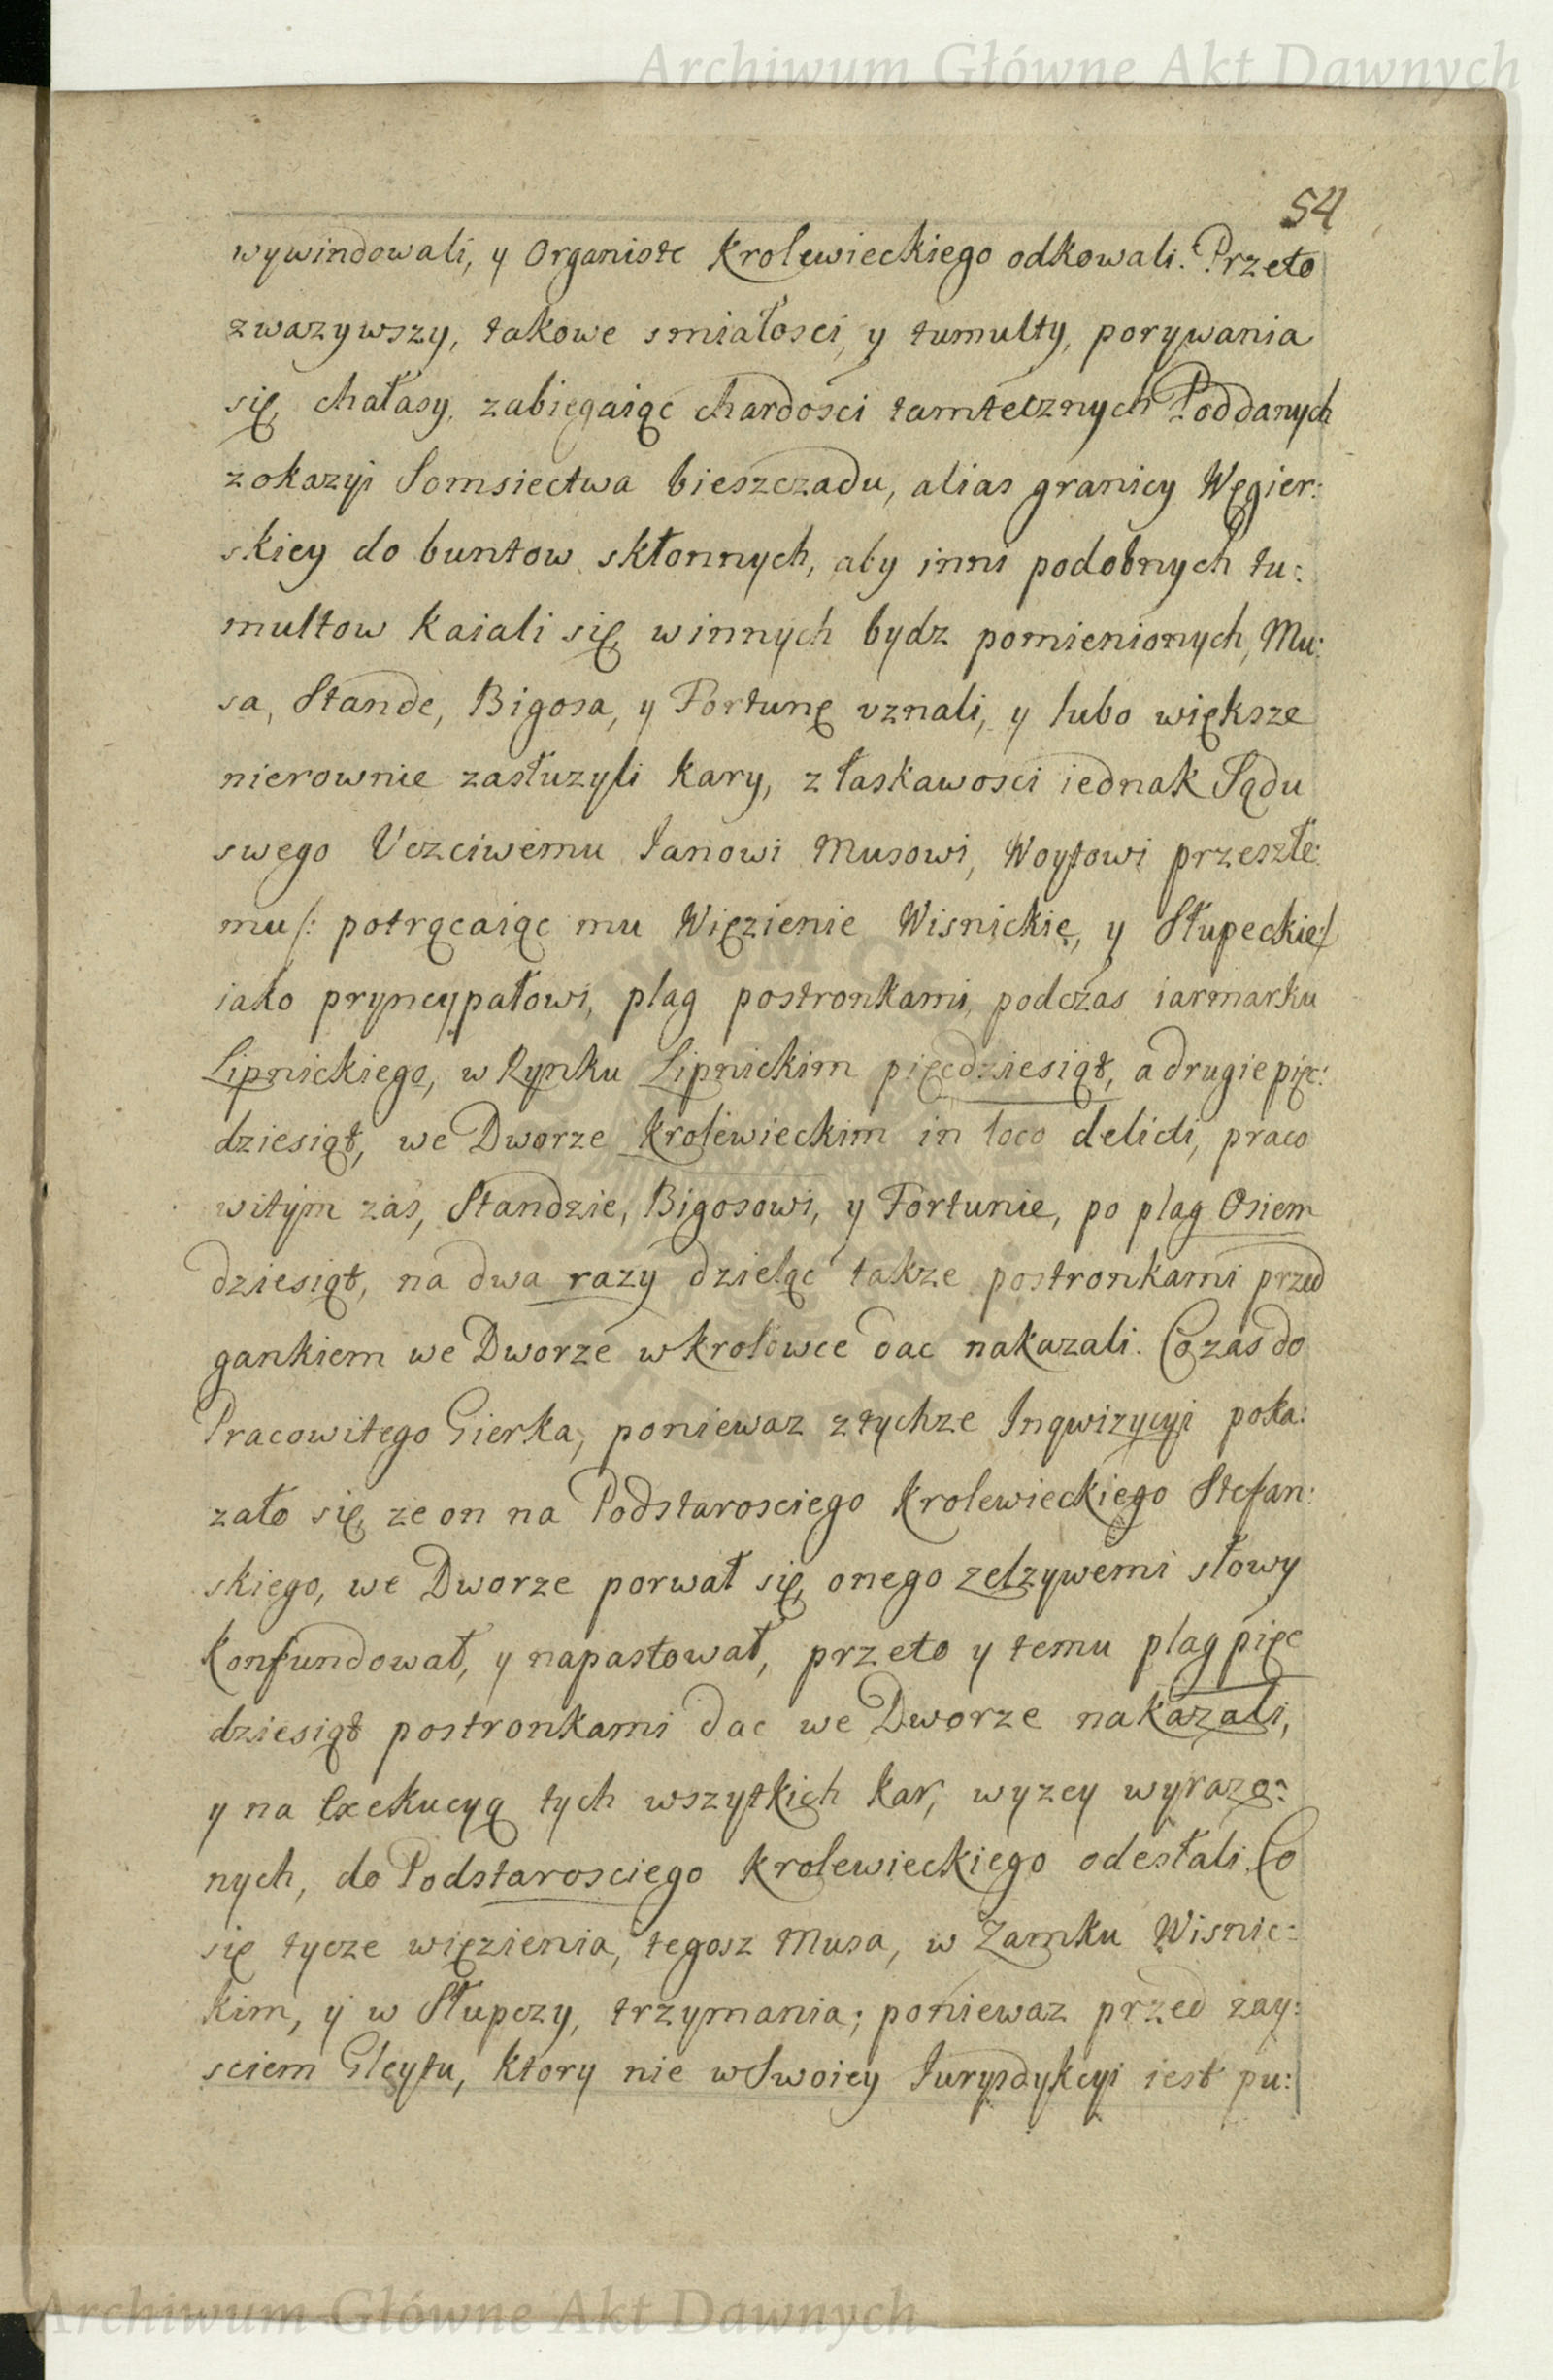 Archiwum Główne Akt Dawnych
54
wywindowali, y Organiste Krolewieckiego odkowali. Przeto
zwazywszy, takowe smiałosci, y tumulty, porywania
się, chałasy, zabiegaiąc chardosci tamtecznych Poddanych
z okazyi Somsiectwa bieszczadu, alias granicy Węgier:
skiey do buntow skłonnych, aby inni podobnych tu:
multow kaiali się, winnych bydz pomienionych, Mu:
sa, Stande, Bigosa, y Fortunę uznali, y lubo większe
nierownie zasłuzyli kary, z łaskawosci iednak Sądu
swego Uczciwemu Janowi Musowi, Woytowi przeszłe:
mu /: potrącaiąc mu Więzienie Wisnickie, y Słupeckie :/
iako pryncypałowi, plag postronkami, podczas iarmarku
Lipnickiego, w Rynku Lipnickim pięcdziesiąt, a drugie pięc:
dziesiąt, we Dworze Krolewieckim in loco delicti, praco
witym zas, Standzie, Bigosowi, y Fortunie, po plag Osiem
dziesiąt, na dwa razy dzieląc takze postronkami przed
gankiem we Dworze w Krolowce dac nakazali. Co zas do
Pracowitego Gierka, poniewaz z tychze Inqwizycyi poka:
zało się, ze on na Podstarosciego Krolewieckiego Stefan:
skiego, we Dworze porwał się, onego zelzywemi słowy
konfundował, y napastował, przeto y temu plag pięc
dziesiąt postronkami dac we Dworze nakazali,
y na Exekucyą tych wszytkich kar, wyzey wyrazo:
nych, do Podstarosciego Krolewieckiego odesłali. Co
się tycze więzienia, tegosz Musa, w Zamku Wisnic:
kim, y w Słupczy, trzymania; poniewaz przed zay:
sciem Gleytu, ktory nie w Swoiey Jurysdykcyi iest pu:
Archiwum Główne Akt Dawnych